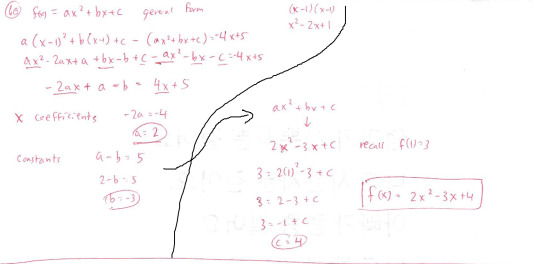 6a) f(x) = ax² + bx + c general Form
a(x-1)² + b(x-1) + c - (ax² + bx + c) = -4x+5
ax² - 2ax + a + bx - b + c - ax² - bx - c = -4x+5
-2ax + a - b = 4x+5
x coefficients -2a = -4
a = 2
Constants a - b = 5
2 - b = 5
b = -3
(x-1)(x-1)
x² - 2x + 1
ax² + bx + c
↓
2x² - 3x + c recall f(1)=3
3 = 2(1)² - 3 + c
3 = 2 - 3 + c
3 = -1 + c
c = 4
f(x) = 2x² - 3x + 4